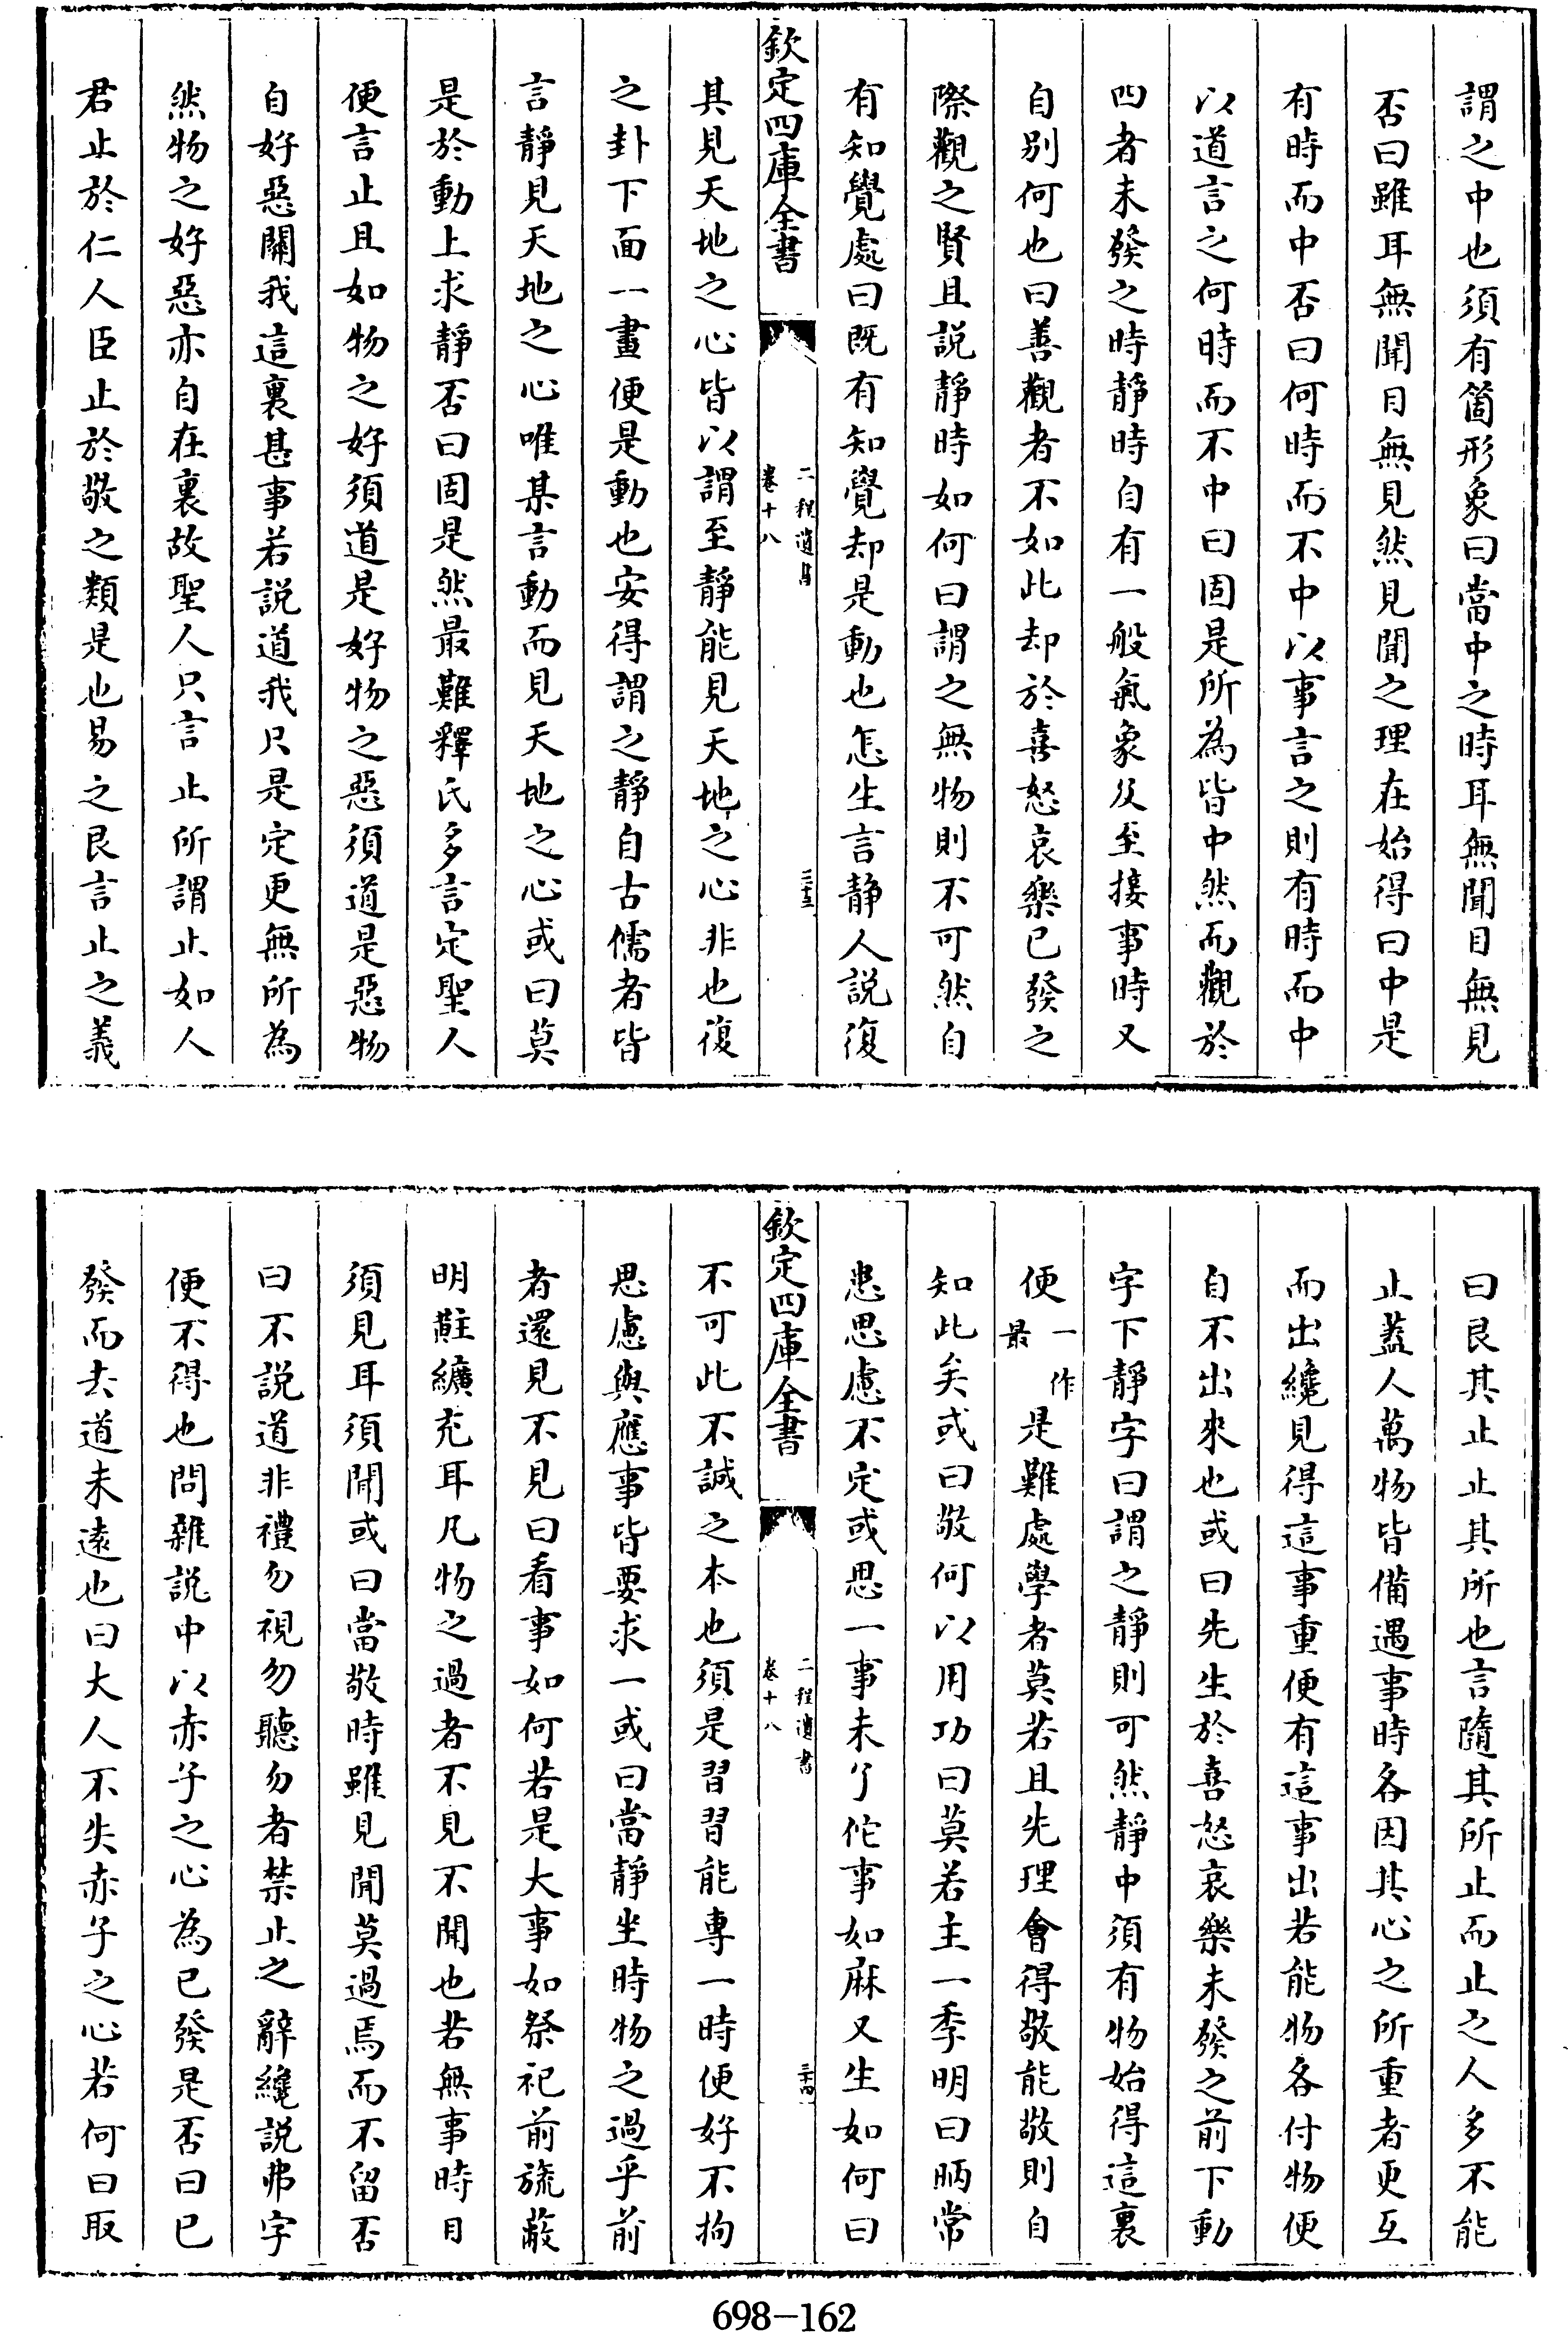 謂之中也須有箇形象曰當中之時耳無聞目無見
否曰雖耳無聞目無見然見聞之理在始得曰中是
有時而中否曰何時而不中以事言之則有時而中
以道言之何時而不中曰固是所為皆中然而觀於
四者未發之時靜時自有一般氣象及至接事時又
自别何也曰善觀者不如此却於喜怒哀樂已發之
際觀之賢且説靜時如何曰謂之無物則不可然自
有知覺處曰既有知覺却是動也怎生言静人説復
欽定四庫全書
二程遺書
卷十八
三十三
其見天地之心皆以謂至靜能見天地之心非也復
之卦下面一畫便是動也安得謂之靜自古儒者皆
言靜見天地之心唯某言動而見天地之心或曰莫
是於動上求靜否曰固是然最難釋氏多言定聖人
便言止且如物之好須道是好物之惡須道是惡物
自好惡關我這裏甚事若説道我只是定更無所為
然物之好惡亦自在裏故聖人只言止所謂止如人
君止於仁人臣止於敬之類是也易之艮言止之義
曰艮其止止其所也言隨其所止而止之人多不能
止蓋人萬物皆備遇事時各因其心之所重者更互
而出纔見得這事重便有這事出若能物各付物便
自不出來也或曰先生於喜怒哀樂未發之前下動
字下靜字曰謂之靜則可然靜中須有物始得這裏
便一作最是難處學者莫若且先理會得敬能敬則自
知此矣或曰敬何以用功曰莫若主一季明曰昞常
患思慮不定或思一事未了佗事如麻又生如何曰
欽定四庫全書
二程遺書
卷十八
三十四
不可此不誠之本也須是習習能專一時便好不拘
思慮與應事皆要求一或曰當靜坐時物之過乎前
者還見不見曰看事如何若是大事如祭祀前旒蔽
明黈纊充耳凡物之過者不見不聞也若無事時目
須見耳須聞或曰當敬時雖見聞莫過焉而不留否
曰不説道非禮勿視勿聽勿者禁止之辭纔説弗字
便不得也問雜説中以赤子之心為已發是否曰已
發而去道未遠也曰大人不失赤子之心若何曰取
698-162